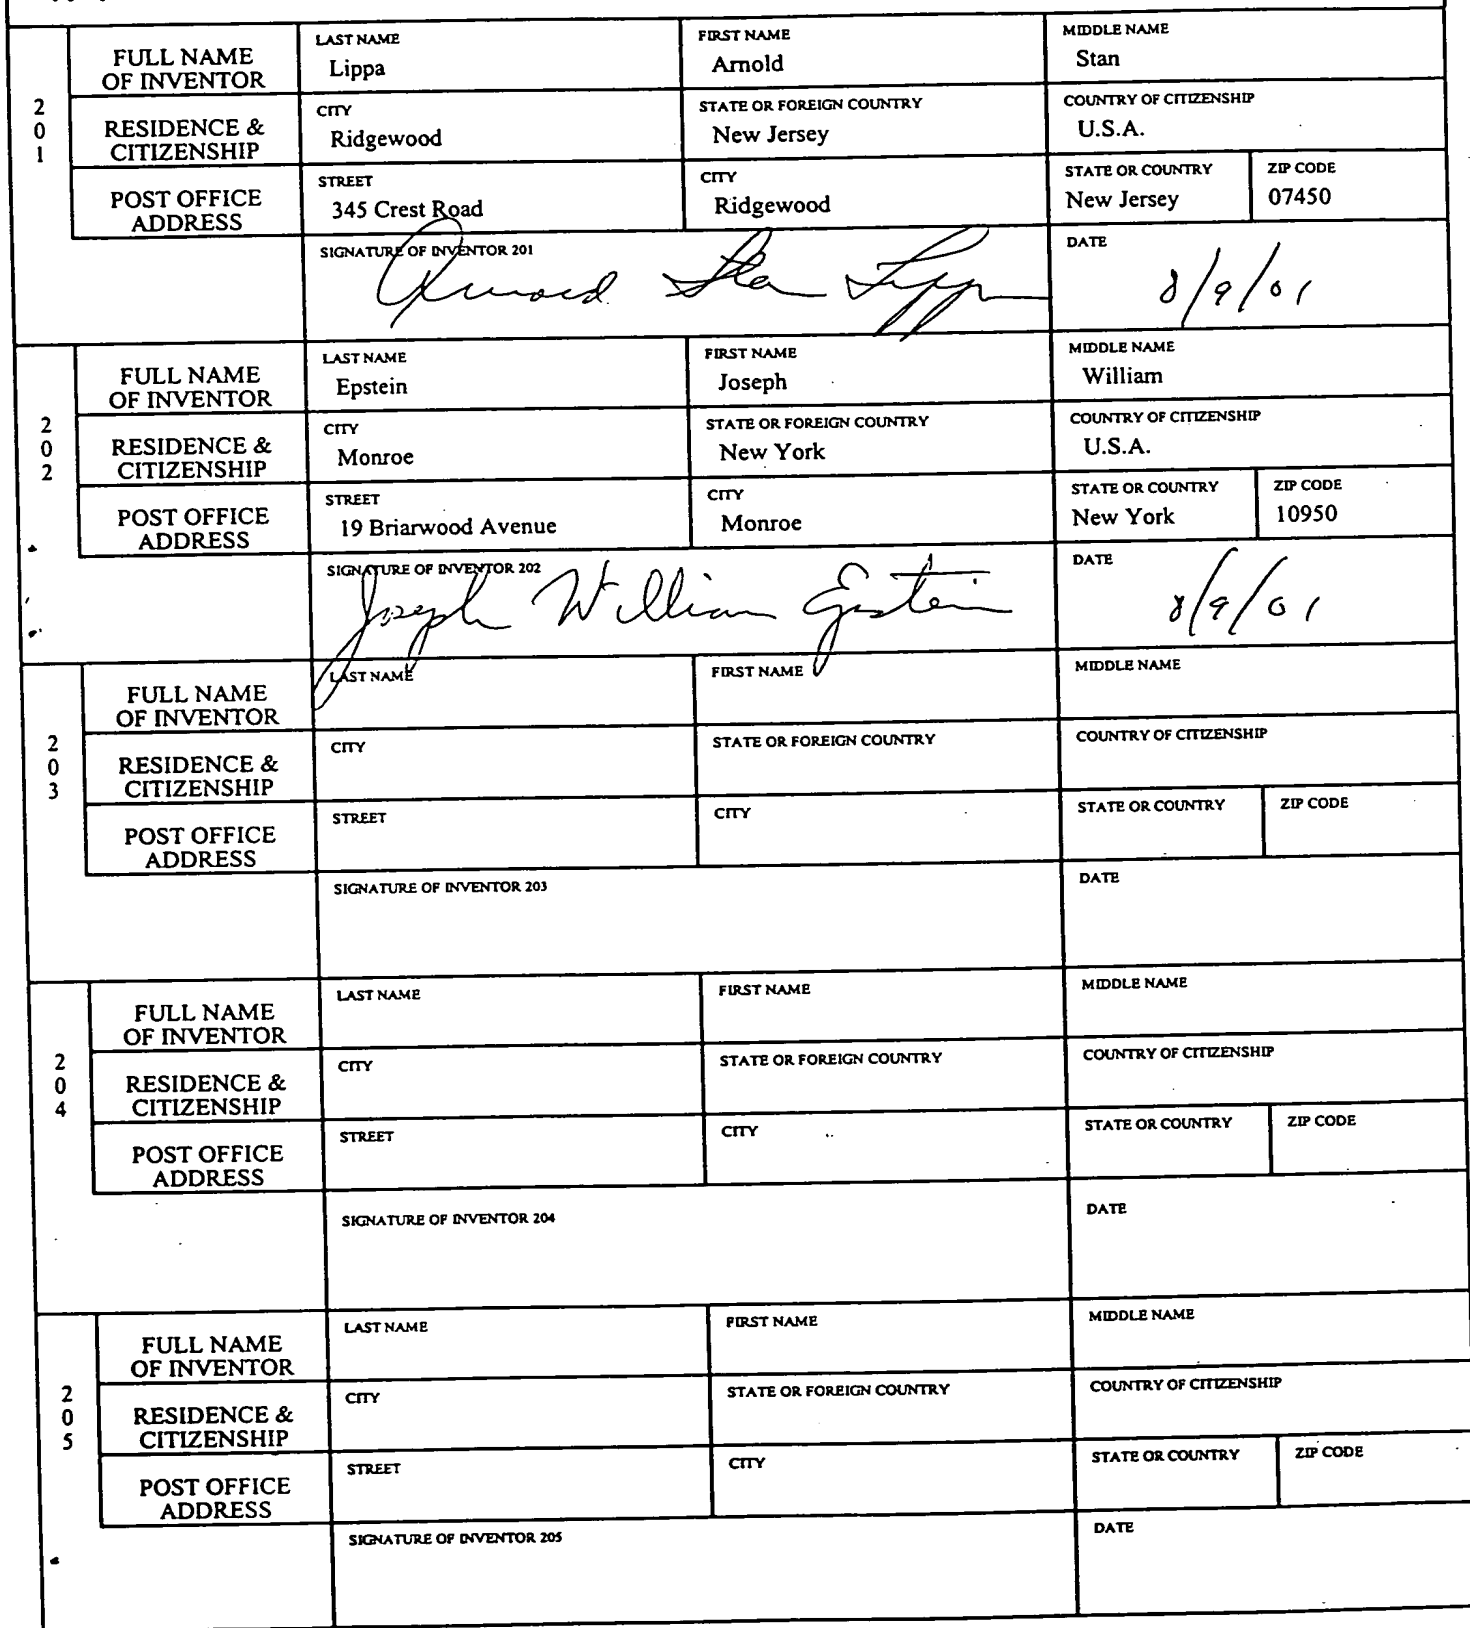 2
0
1
FULL NAME
OF INVENTOR
LAST NAME
Lippa
FIRST NAME
Arnold
MIDDLE NAME
Stan
RESIDENCE &
CITIZENSHIP
CITY
Ridgewood
STATE OR FOREIGN COUNTRY
New Jersey
COUNTRY OF CITIZENSHIP
U.S.A.
POST OFFICE
ADDRESS
STREET
345 Crest Road
CITY
Ridgewood
STATE OR COUNTRY
New Jersey
ZIP CODE
07450
SIGNATURE OF INVENTOR 201
Arnold Stan Lippa
DATE
8/9/01
2
0
2
FULL NAME
OF INVENTOR
LAST NAME
Epstein
FIRST NAME
Joseph
MIDDLE NAME
William
RESIDENCE &
CITIZENSHIP
CITY
Monroe
STATE OR FOREIGN COUNTRY
New York
COUNTRY OF CITIZENSHIP
U.S.A.
POST OFFICE
ADDRESS
STREET
19 Briarwood Avenue
CITY
Monroe
STATE OR COUNTRY
New York
ZIP CODE
10950
SIGNATURE OF INVENTOR 202
Joseph William Epstein
DATE
8/9/01
2
0
3
FULL NAME
OF INVENTOR
LAST NAME
FIRST NAME
MIDDLE NAME
RESIDENCE &
CITIZENSHIP
CITY
STATE OR FOREIGN COUNTRY
COUNTRY OF CITIZENSHIP
POST OFFICE
ADDRESS
STREET
CITY
STATE OR COUNTRY
ZIP CODE
SIGNATURE OF INVENTOR 203
DATE
2
0
4
FULL NAME
OF INVENTOR
LAST NAME
FIRST NAME
MIDDLE NAME
RESIDENCE &
CITIZENSHIP
CITY
STATE OR FOREIGN COUNTRY
COUNTRY OF CITIZENSHIP
POST OFFICE
ADDRESS
STREET
CITY
STATE OR COUNTRY
ZIP CODE
SIGNATURE OF INVENTOR 204
DATE
2
0
5
FULL NAME
OF INVENTOR
LAST NAME
FIRST NAME
MIDDLE NAME
RESIDENCE &
CITIZENSHIP
CITY
STATE OR FOREIGN COUNTRY
COUNTRY OF CITIZENSHIP
POST OFFICE
ADDRESS
STREET
CITY
STATE OR COUNTRY
ZIP CODE
SIGNATURE OF INVENTOR 205
DATE